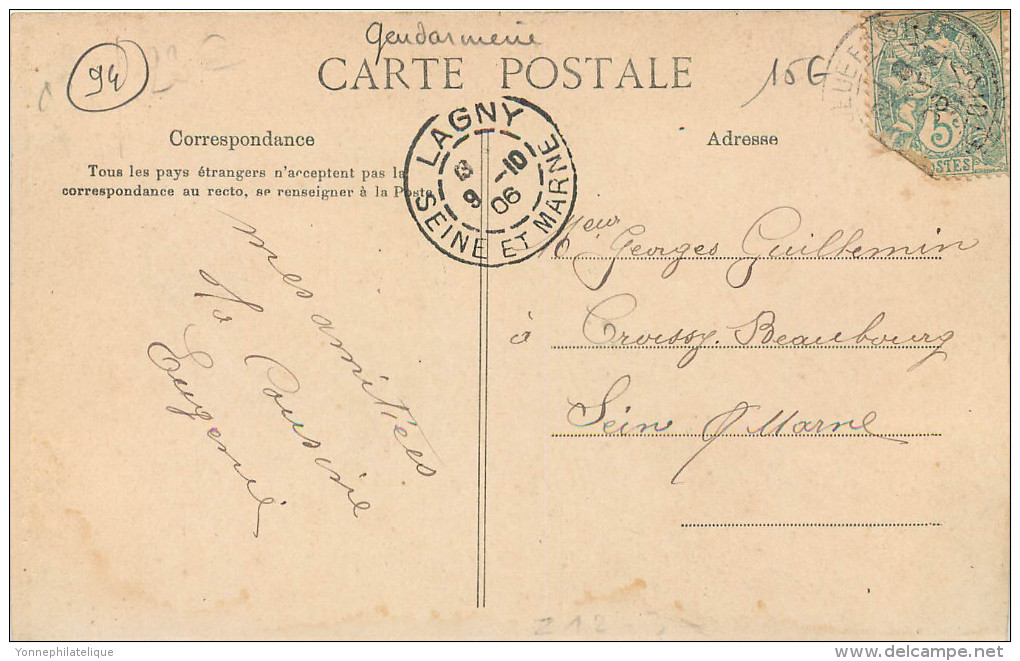 Gendarmerie
94
CARTE POSTALE
15G
Correspondance
Adresse
Tous les pays étrangers n'acceptent pas la
correspondance au recto, se renseigner à la Poste
LAGNY
SEINE ET MARNE
9 -10
06
5c
POSTES
Meur Georges Guillemin
à Croissy-Beaubourg
Sein & Marne
mes amitiées
Ta Cousine
Eugenie
Z12
Yonnephilatelique